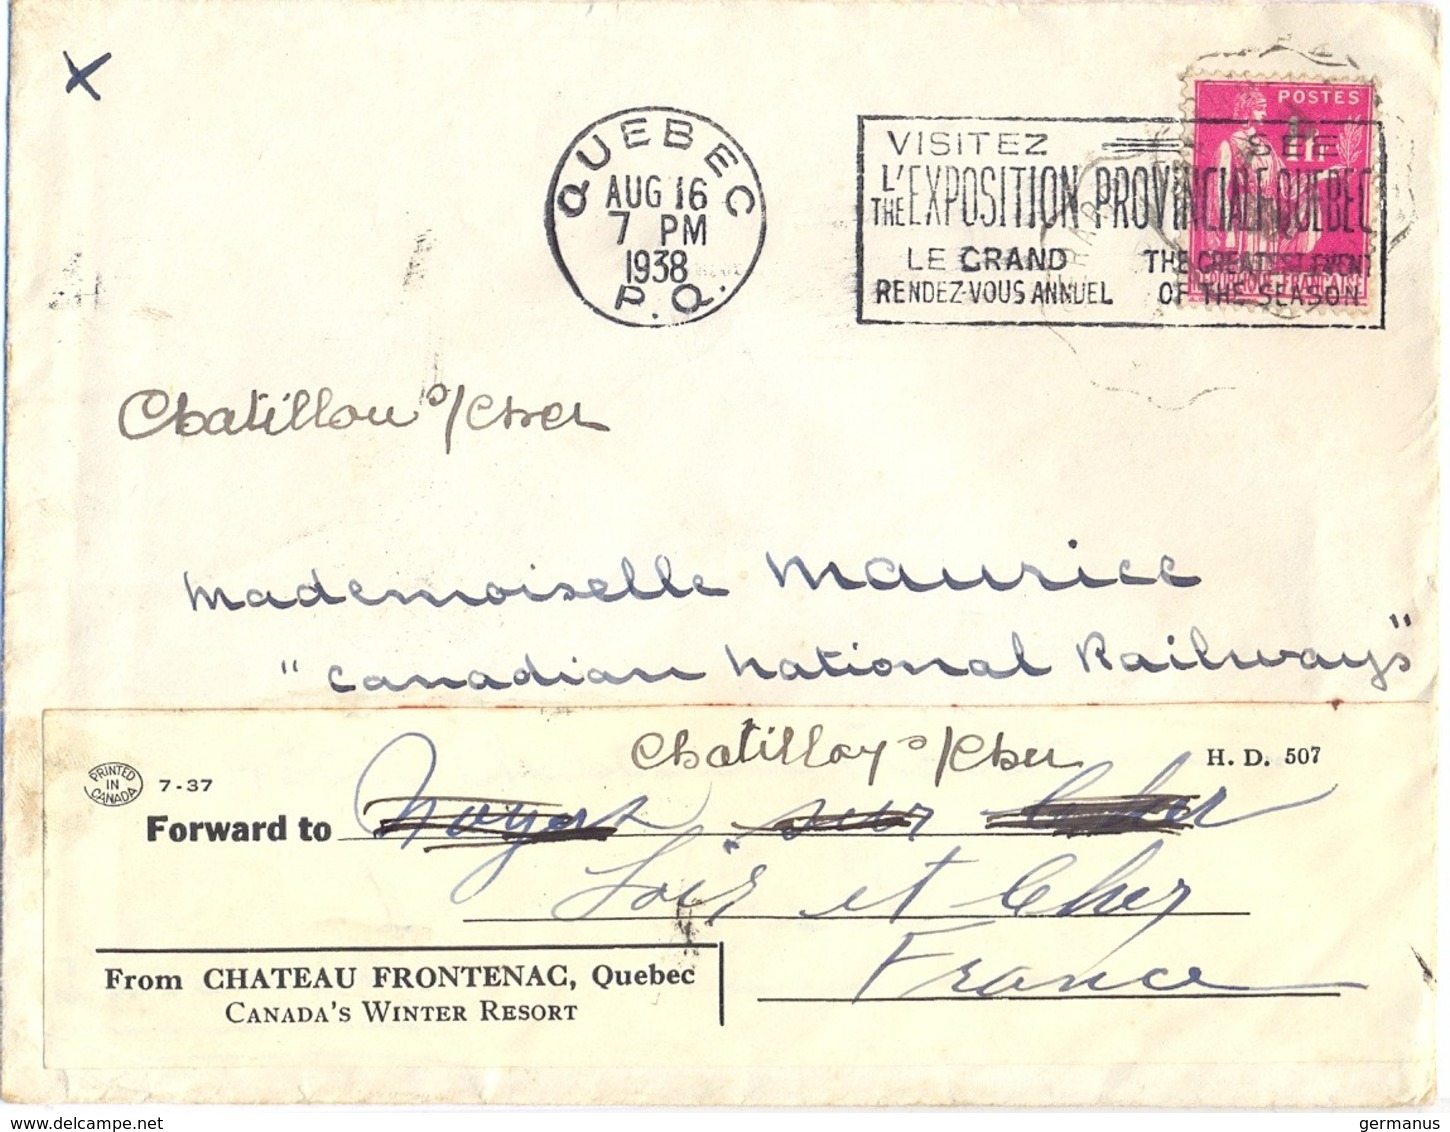 POSTES
1F
QUEBEC
AUG 16
7 PM
1938
P.Q.
VISITEZ SEE
L'
THE EXPOSITION PROVINCIALE QUEBEC
LE GRAND THE GREATEST EVENT
RENDEZ-VOUS ANNUEL OF THE SEASON
REPUBLIQUE FRANÇAISE
Chatillon s/Cher
Mademoiselle Maurice
"Canadian National Railways"
Chatillon s/Cher
H. D. 507
PRINTED
IN
CANADA
7-37
Forward to Noyers sur Cher
Loir et Cher
France
From CHATEAU FRONTENAC, Quebec
CANADA'S WINTER RESORT
www.delcampe.net
germanus